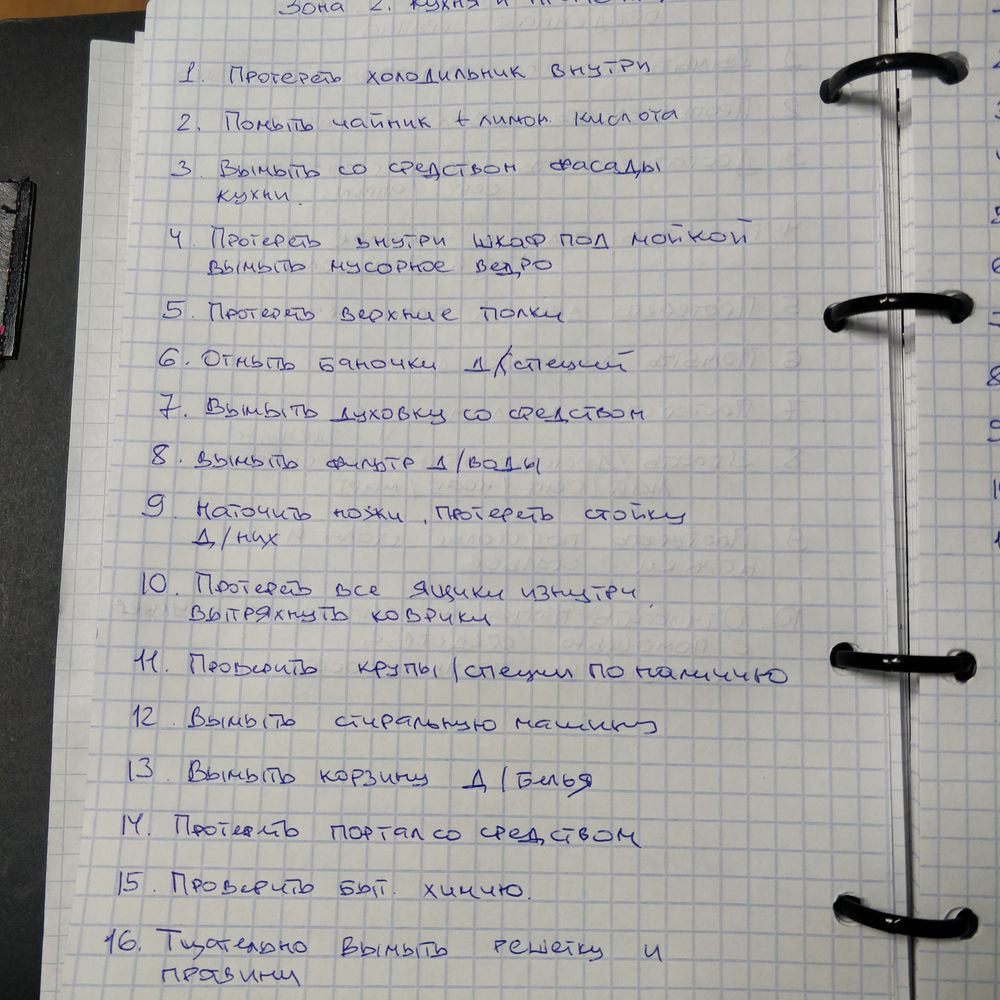 Зона 2. Кухня и
1. Протереть холодильник внутри
2. Помыть чайник + лимон. кислота
3. Вымыть со средством фасады
кухни.
4. Протереть внутри шкаф под мойкой
вымыть мусорное ведро
5. Протереть верхние полки
6. Отмыть баночки д/специй
7. Вымыть духовку со средством
8. Вымыть фильтр д/воды
9 Наточить ножи, протереть стойку
д/них
10. Протереть все ящики изнутри,
вытряхнуть коврики
11. Проверить крупы/специи по наличию
12. Вымыть стиральную машину
13 Вымыть корзину д/белья
14. Протереть портал со средством
15. Проверить быт. химию.
16. Тщательно вымыть решетку и